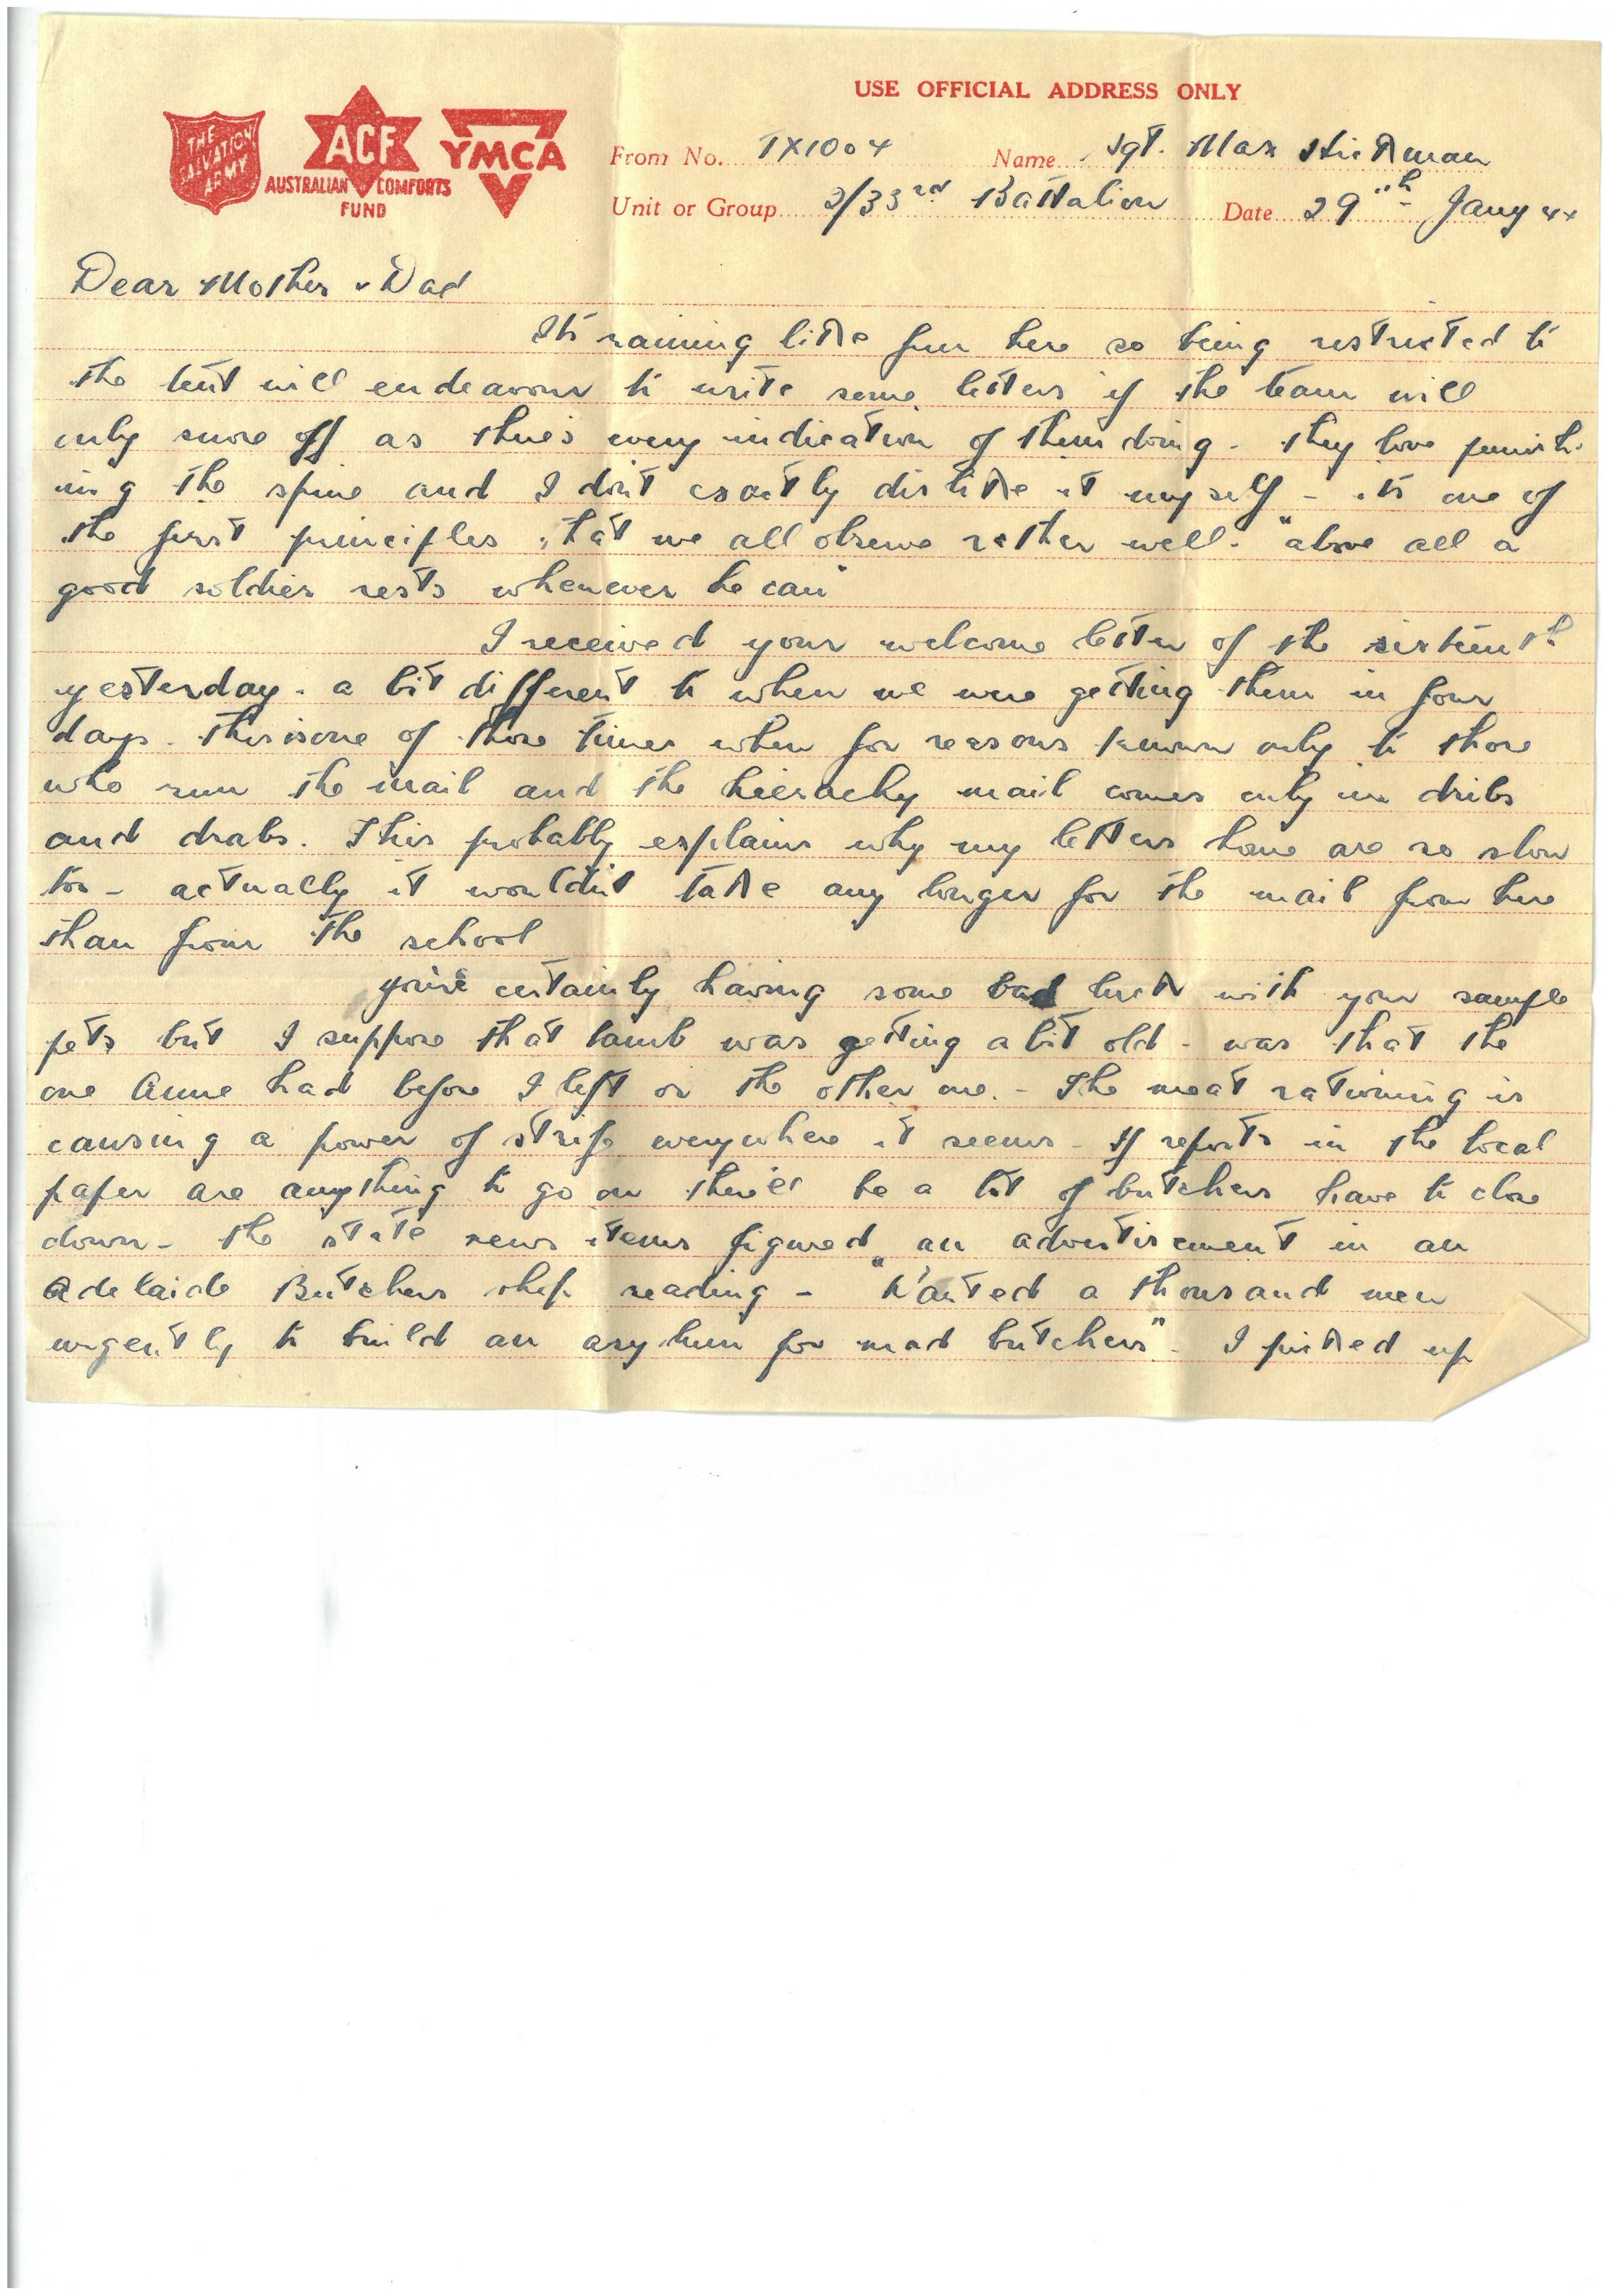 USE OFFICIAL ADDRESS ONLY
THE SALVATION ARMY
ACF
AUSTRALIAN COMFORTS FUND
YMCA
From No. TX1004 Name Sgt. Max Hickman
Unit or Group 2/33rd Battalion Date 29th Jany 44
Dear Mother & Dad
Its raining like fun here so being restricted to
the tent will endeavour to write some letters if the team will
only snore off as theres every indication of them doing - they love punish-
ing the spine and I dont exactly dislike it myself - its one of
the first principles that we all observe rather well - "above all a
good soldier rests whenever he can"
I received your welcome letter of the sixteenth
yesterday - a bit different to when we were getting them in four
days. This is one of those times when for reasons known only to those
who run the mail and the hierachy mail comes only in dribs
and drabs. This probably explains why my letters home are so slow
too - actually it wouldnt take any longer for the mail from here
than from the school
you're certainly having some bad luck with your sample
pets but I suppose that lamb was getting a bit old - was that the
one Anne had before I left or the other one. - The meat rationing is
causing a power of strife everywhere it seems - If reports in the local
paper are anything to go on there'll be a lot of butchers have to close
down - the state news items figured an advertisement in an
Adelaide Butchers shop reading - "Wanted a thousand men
urgently to build an asylum for mad butchers" - I picked up